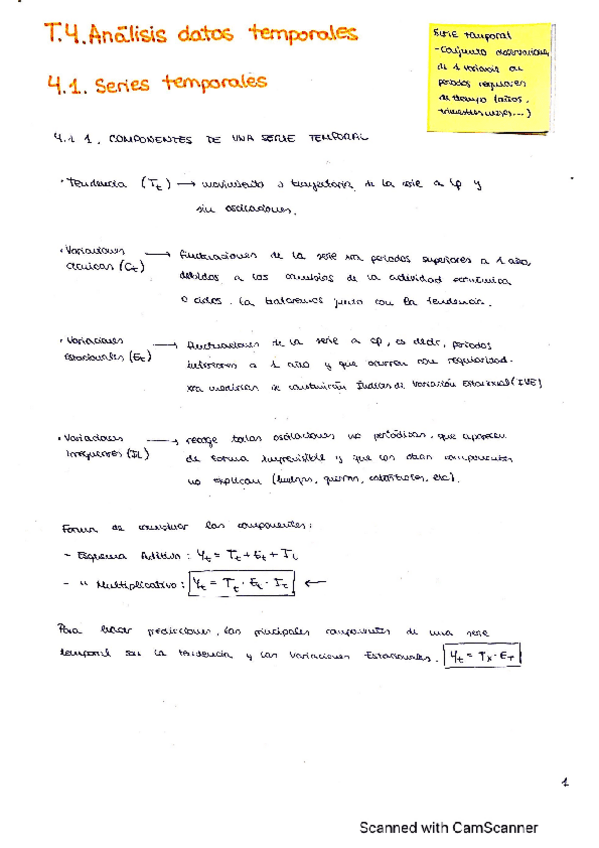 T.4. Análisis datos temporales
Serie temporal
- Conjunto observaciones
de 1 variable en
periodos regulares
de tiempo (años,
trimestres, meses...)
4.1. Series temporales
4.1.1. COMPONENTES DE UNA SERIE TEMPORAL
· Tendencia (Tt) → movimiento o trayectoria de la serie a lp y
sin oscilaciones.
· Variaciones → fluctuaciones de la serie para periodos superiores a 1 año,
cíclicas (Ct) debidos a los cambios de la actividad económica
o ciclos. La trataremos junto con la tendencia.
· Variaciones → fluctuaciones de la serie a cp, es decir, periodos
estacionales (Et) inferiores a 1 año y que ocurren con regularidad.
para medirlas se construirán Índices de Variación Estacional (IVE)
· Variaciones → recoge todas oscilaciones no periódicas, que aparecen
irregulares (It) de forma imprevisible y que las demás componentes
no explican (huelgas, guerras, catástrofes, etc).
Forma de combinar las componentes:
- Esquema Aditivo: Yt = Tt + Et + It
- " Multiplicativo: Yt = Tt · Et · It ←
Para hacer predicciones, las principales componentes de una serie
temporal son la tendencia y las Variaciones Estacionales. Yt = Tx · ET
1
Scanned with CamScanner